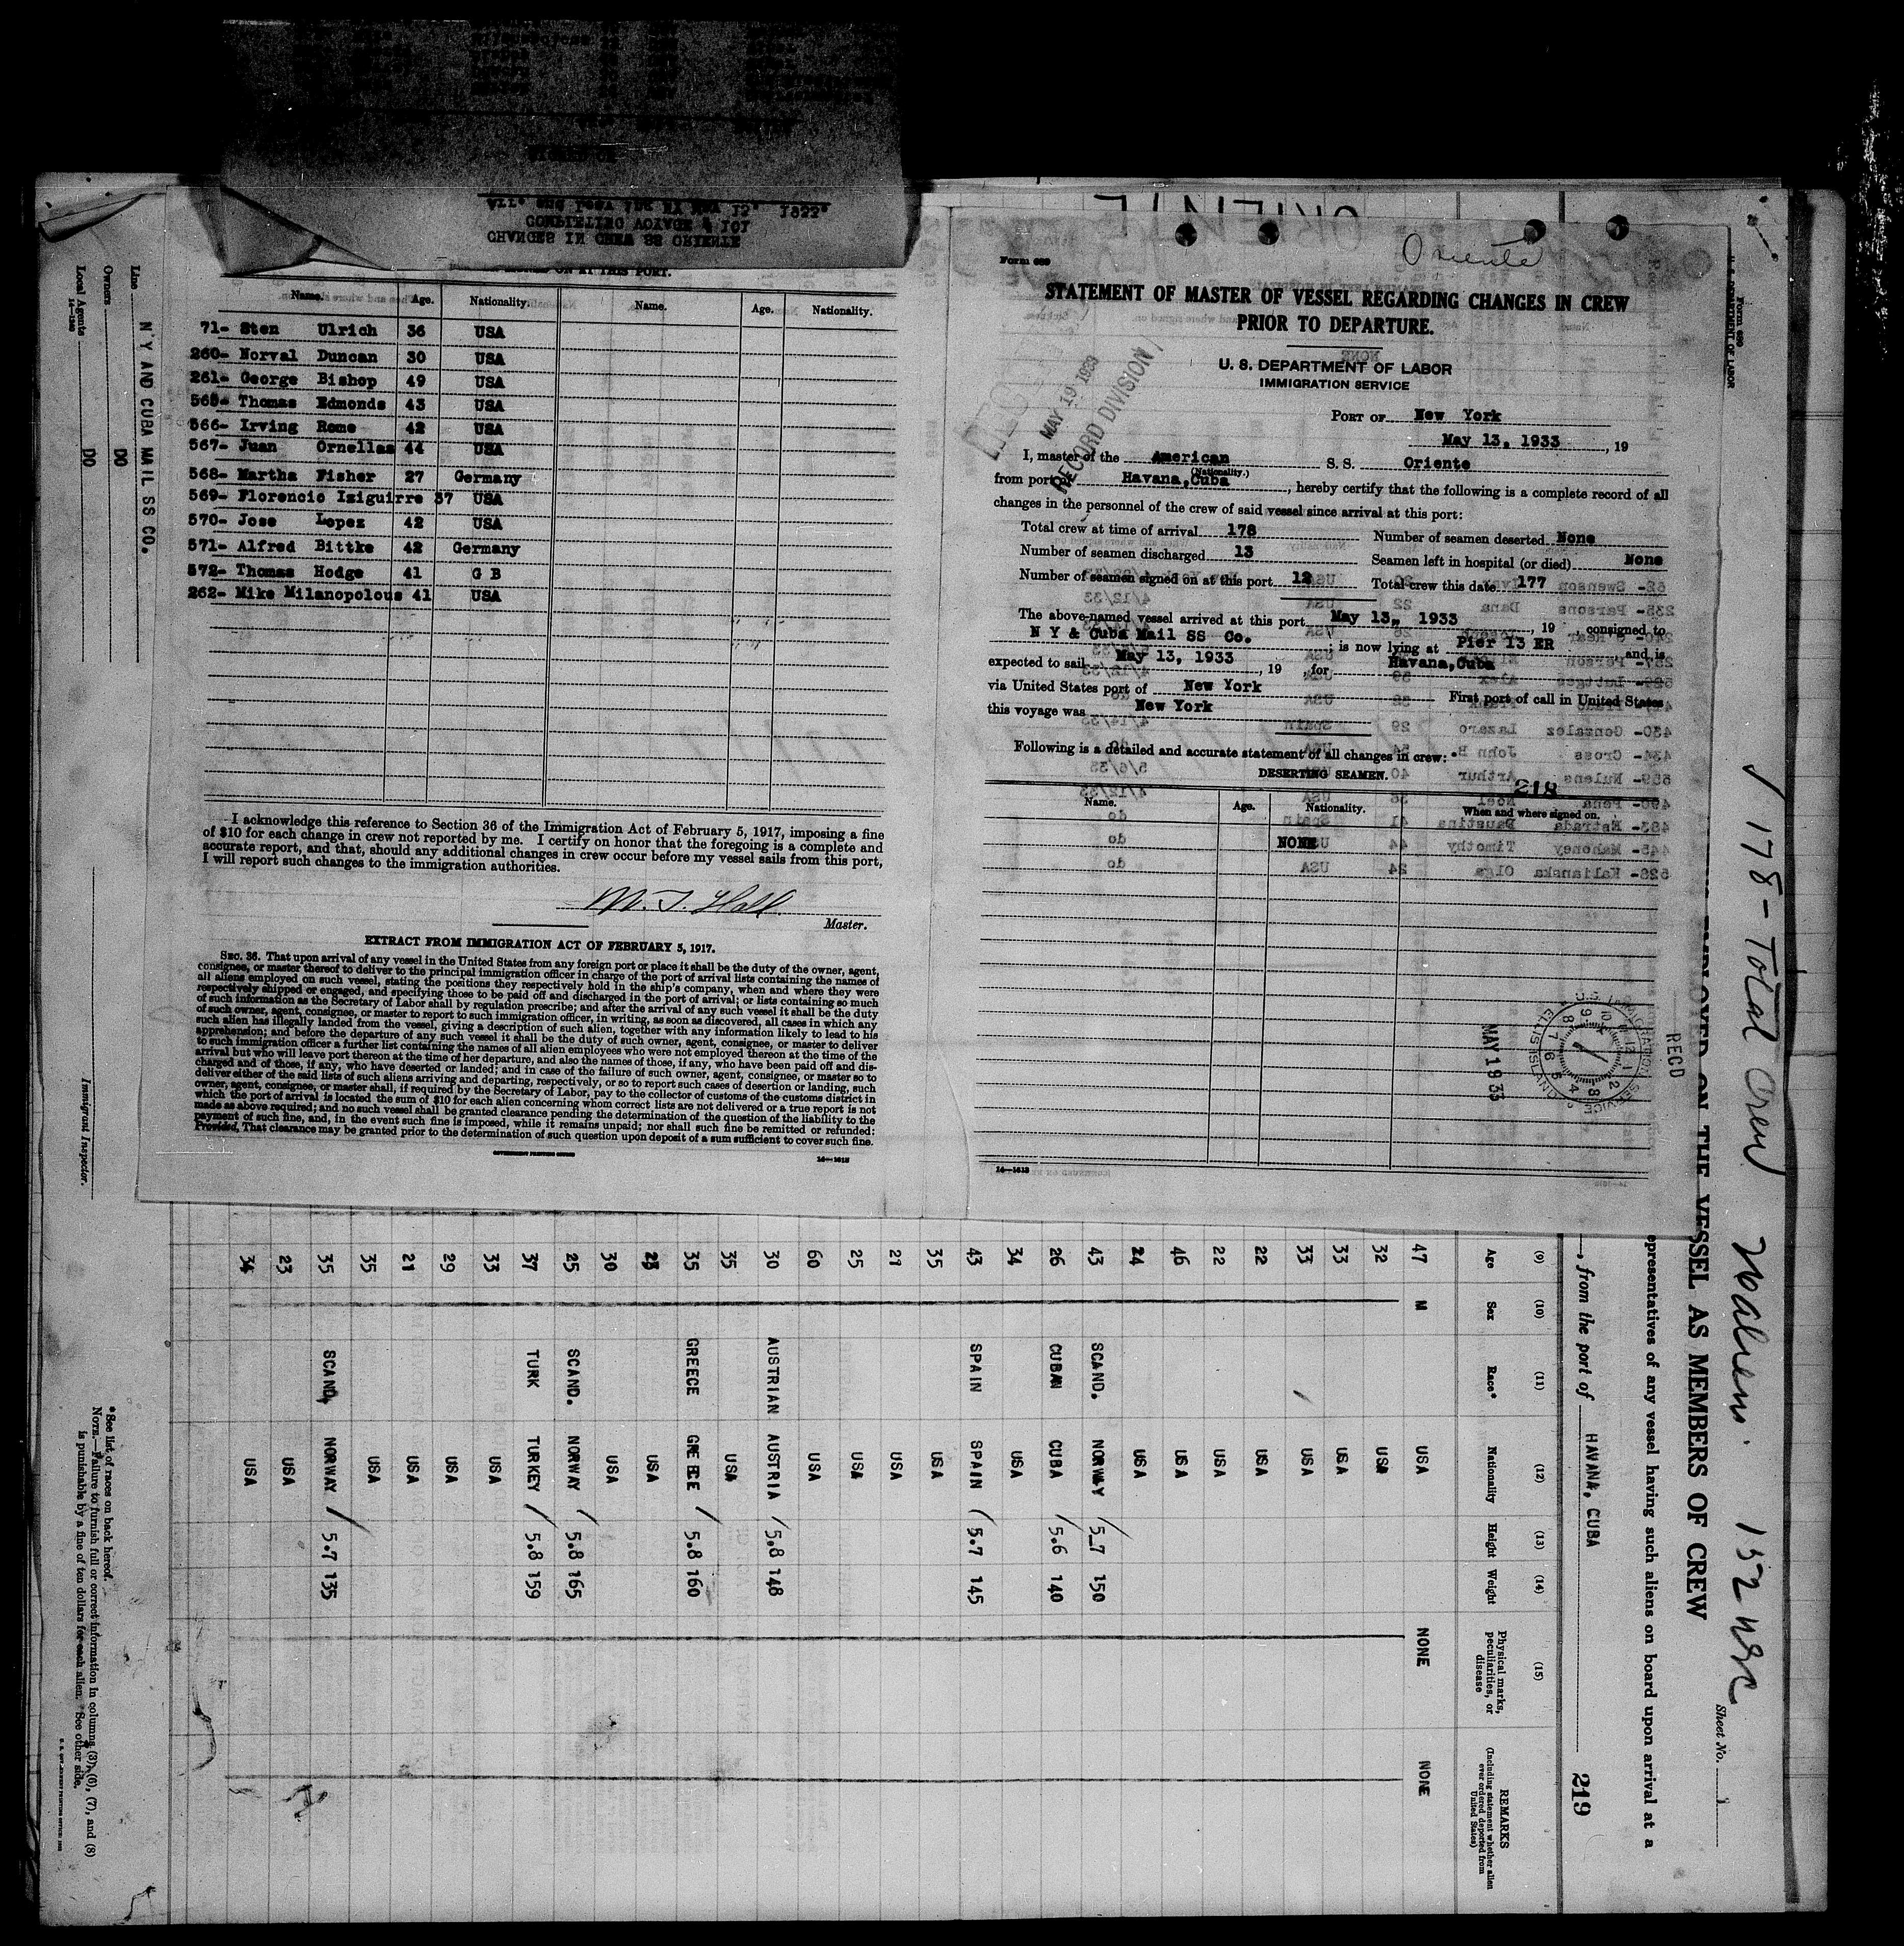 CHANGES IN CREW SS ORIENTE
ON AT THIS PORT.
Name. Age. Nationality. Name. Age. Nationality.
71- Sten Ulrich 36 USA
260- Norval Duncan 30 USA
261- George Bishop 49 USA
565- Thomas Edmonds 43 USA
566- Irving Rome 42 USA
567- Juan Ornellas 44 USA
568- Martha Fisher 27 Germany
569- Florencio Isiguirre 37 USA
570- Jose Lopez 42 USA
571- Alfred Bittke 42 Germany
572- Thomas Hodge 41 G B
262- Mike Milanopolous 41 USA
I acknowledge this reference to Section 36 of the Immigration Act of February 5, 1917, imposing a fine
of $10 for each change in crew not reported by me. I certify on honor that the foregoing is a complete and
accurate report, and that, should any additional changes in crew occur before my vessel sails from this port,
I will report such changes to the immigration authorities.
M. J. Hall
Master.
EXTRACT FROM IMMIGRATION ACT OF FEBRUARY 5, 1917.
SEC. 36. That upon arrival of any vessel in the United States from any foreign port or place it shall be the duty of the owner, agent,
consignee, or master thereof to deliver to the principal immigration officer in charge of the port of arrival lists containing the names of
all aliens employed on such vessel, stating the positions they respectively hold in the ship's company, when and where they were
respectively shipped or engaged, and specifying those to be paid off and discharged in the port of arrival; or lists containing so much
of such information as the Secretary of Labor shall by regulation prescribe; and after the arrival of any such vessel it shall be the duty
of such owner, agent, consignee, or master to report to such immigration officer, in writing, as soon as discovered, all cases in which any
such alien has illegally landed from the vessel, giving a description of such alien, together with any information likely to lead to his
apprehension; and before the departure of any such vessel it shall be the duty of such owner, agent, consignee, or master to deliver
to such immigration officer a further list containing the names of all alien employees who were not employed thereon at the time of the
arrival but who will leave port thereon at the time of her departure, and also the names of those, if any, who have been paid off and dis-
charged and of those, if any, who have deserted or landed; and in case of the failure of such owner, agent, consignee, or master so to
deliver either of the said lists of such aliens arriving and departing, respectively, or so to report such cases of desertion or landing, such
owner, agent, consignee, or master shall, if required by the Secretary of Labor, pay to the collector of customs of the customs district in
which the port of arrival is located the sum of $10 for each alien concerning whom correct lists are not delivered or a true report is not
made as above required; and no such vessel shall be granted clearance pending the determination of the question of the liability to the
payment of such fine, and, in the event such fine is imposed, while it remains unpaid; nor shall such fine be remitted or refunded:
Provided, That clearance may be granted prior to the determination of such question upon deposit of a sum sufficient to cover such fine.
GOVERNMENT PRINTING OFFICE 14—1613
ORIENTE
Oriente
Form 689
STATEMENT OF MASTER OF VESSEL REGARDING CHANGES IN CREW
PRIOR TO DEPARTURE.
U. S. DEPARTMENT OF LABOR
IMMIGRATION SERVICE
MAY 19 1933
RECORD DIVISION
PORT OF New York
May 13, 1933, 19
I, master of the American S. S. Oriente
(Nationality.)
from port of Havana,Cuba, hereby certify that the following is a complete record of all
changes in the personnel of the crew of said vessel since arrival at this port:
Total crew at time of arrival 178 Number of seamen deserted None
Number of seamen discharged 13 Seamen left in hospital (or died) None
Number of seamen signed on at this port 12 Total crew this date 177
The above-named vessel arrived at this port May 13, 1933, 19 , consigned to
N Y & Cuba Mail SS Co. ; is now lying at Pier 13 ER and is
expected to sail May 13, 1933, 19 , for Havana,Cuba
via United States port of New York First port of call in United States
this voyage was New York
Following is a detailed and accurate statement of all changes in crew:
DESERTING SEAMEN.
218
Name. Age. Nationality. When and where signed on.
NONE
14—1613
RECD
MAY 19 33
U.S. IMMIGRATION SERVICE
ELLIS ISLAND
Line N Y AND CUBA MAIL SS CO.
Owners DO
Local Agents DO
14—1240
Immigrant Inspector.
✓ 178 - Total Crew
152 USC
Sheet No. 1
EMPLOYED ON THE VESSEL AS MEMBERS OF CREW
epresentatives of any vessel having such aliens on board upon arrival at a
, from the port of HAVANA, CUBA
219
(9) (10) (11) (12) (13) (14) (15)
Age Sex Race* Nationality Height Weight Physical marks, peculiarities, or disease REMARKS (Including statement whether alien ever ordered deported from United States)
47 M USA NONE NONE
32 USA
33 USA
33 USA
22 USA
22 USA
46 USA
24 USA
43 SCAND. NORWAY 5_7 150
26 CUBAN CUBA 5.6 140
34 USA
43 SPAIN SPAIN 5.7 145
35 USA
21 USA
25 USA
60 USA
30 AUSTRIAN AUSTRIA 5.8 148
35 USA
35 GREECE GREECE 5.8 160
USA
30 USA
25 SCAND. NORWAY 5.8 165
37 TURK TURKEY 5.8 159
33 USA
29 USA
21 USA
35 USA
35 SCAND. NORWAY 5.7 135
23 USA
34 USA
*See list of races on back hereof.
NOTE.—Failure to furnish full or correct information in columns (3), (6), (7), and (8)
is punishable by a fine of ten dollars for each alien. See other side.